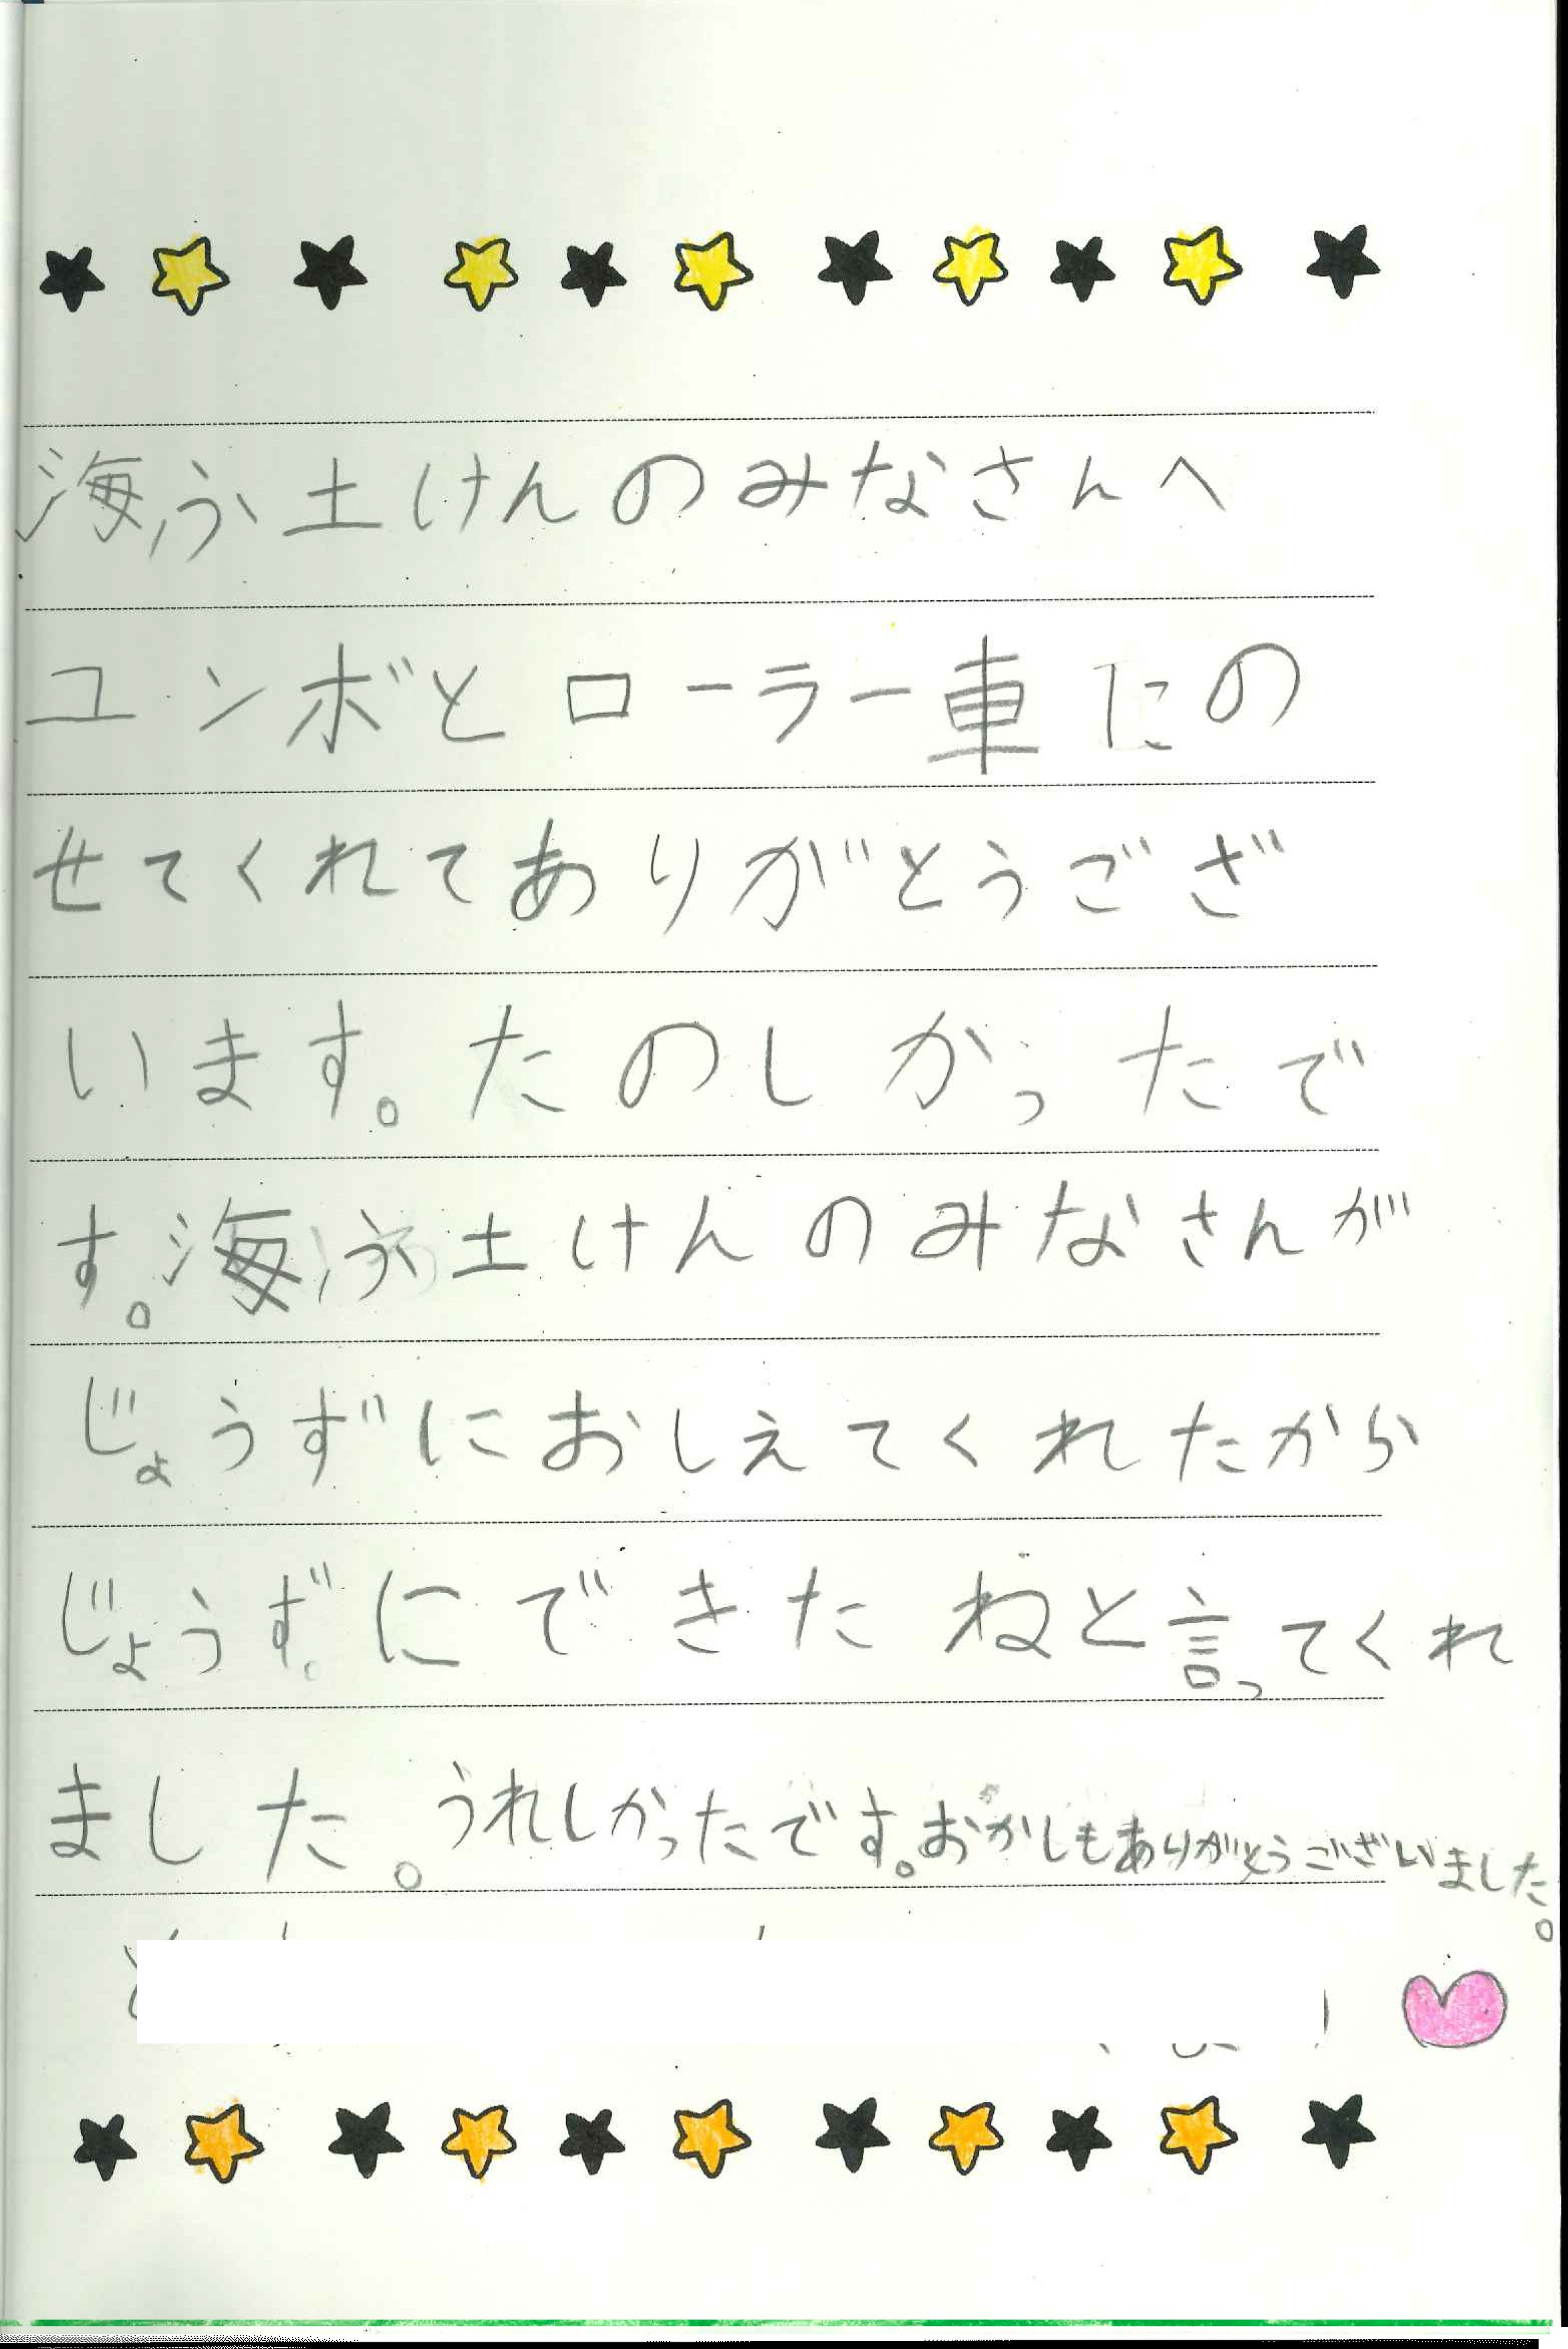 海ふ土けんのみなさんへ
ユンボとローラー車にの
せてくれてありがとうござ
います。たのしかったで
す。海ふ土けんのみなさんが
じょうずにおしえてくれたから
じょうずにできたねと言ってくれ
ました。うれしかったです。おかしもありがとうございました。